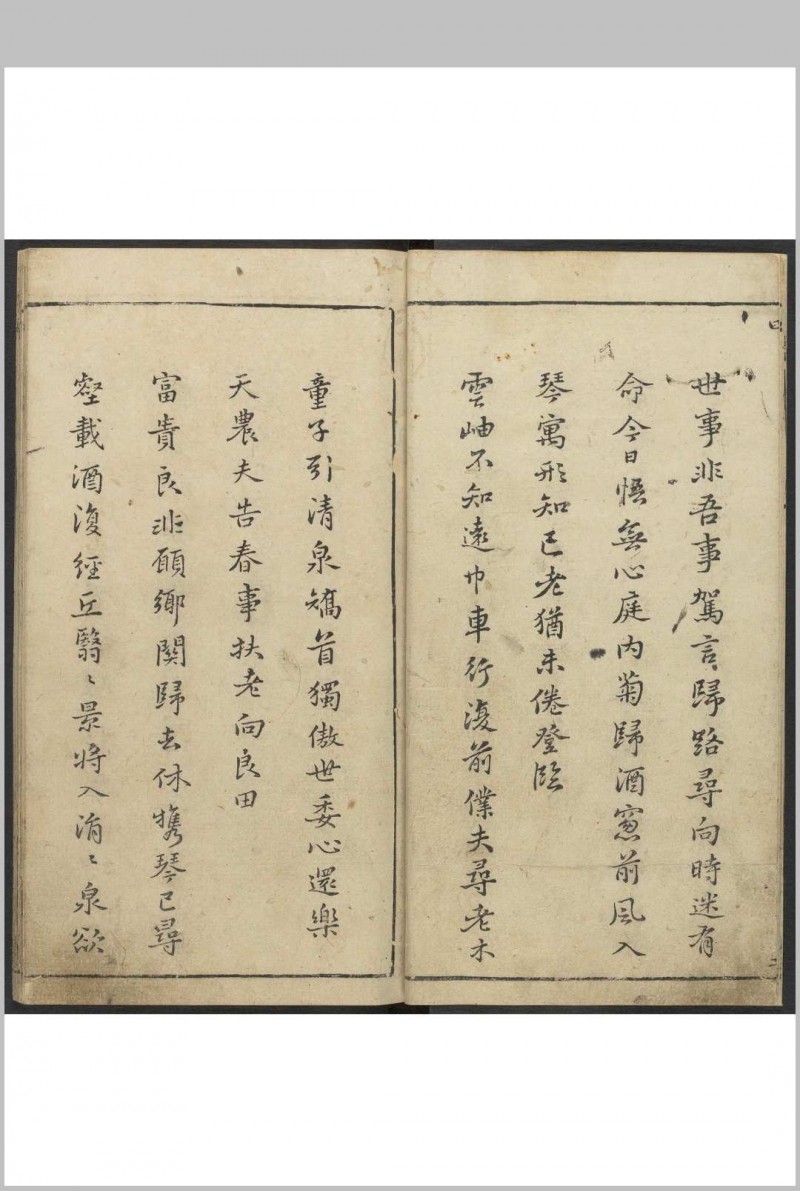 世事非吾事駕言歸路尋向時迷有
命今日悟無心庭內菊歸酒窓前風入
琴寓形知已老猶未倦登臨
雲岫不知遠巾車行復前僕夫尋老木
童子引清泉矯首獨傲世委心還樂
天農夫告春事扶老向良田
富貴良非願鄉関歸去休携琴已尋
壑載酒復經丘翳〻景將入涓〻泉欲